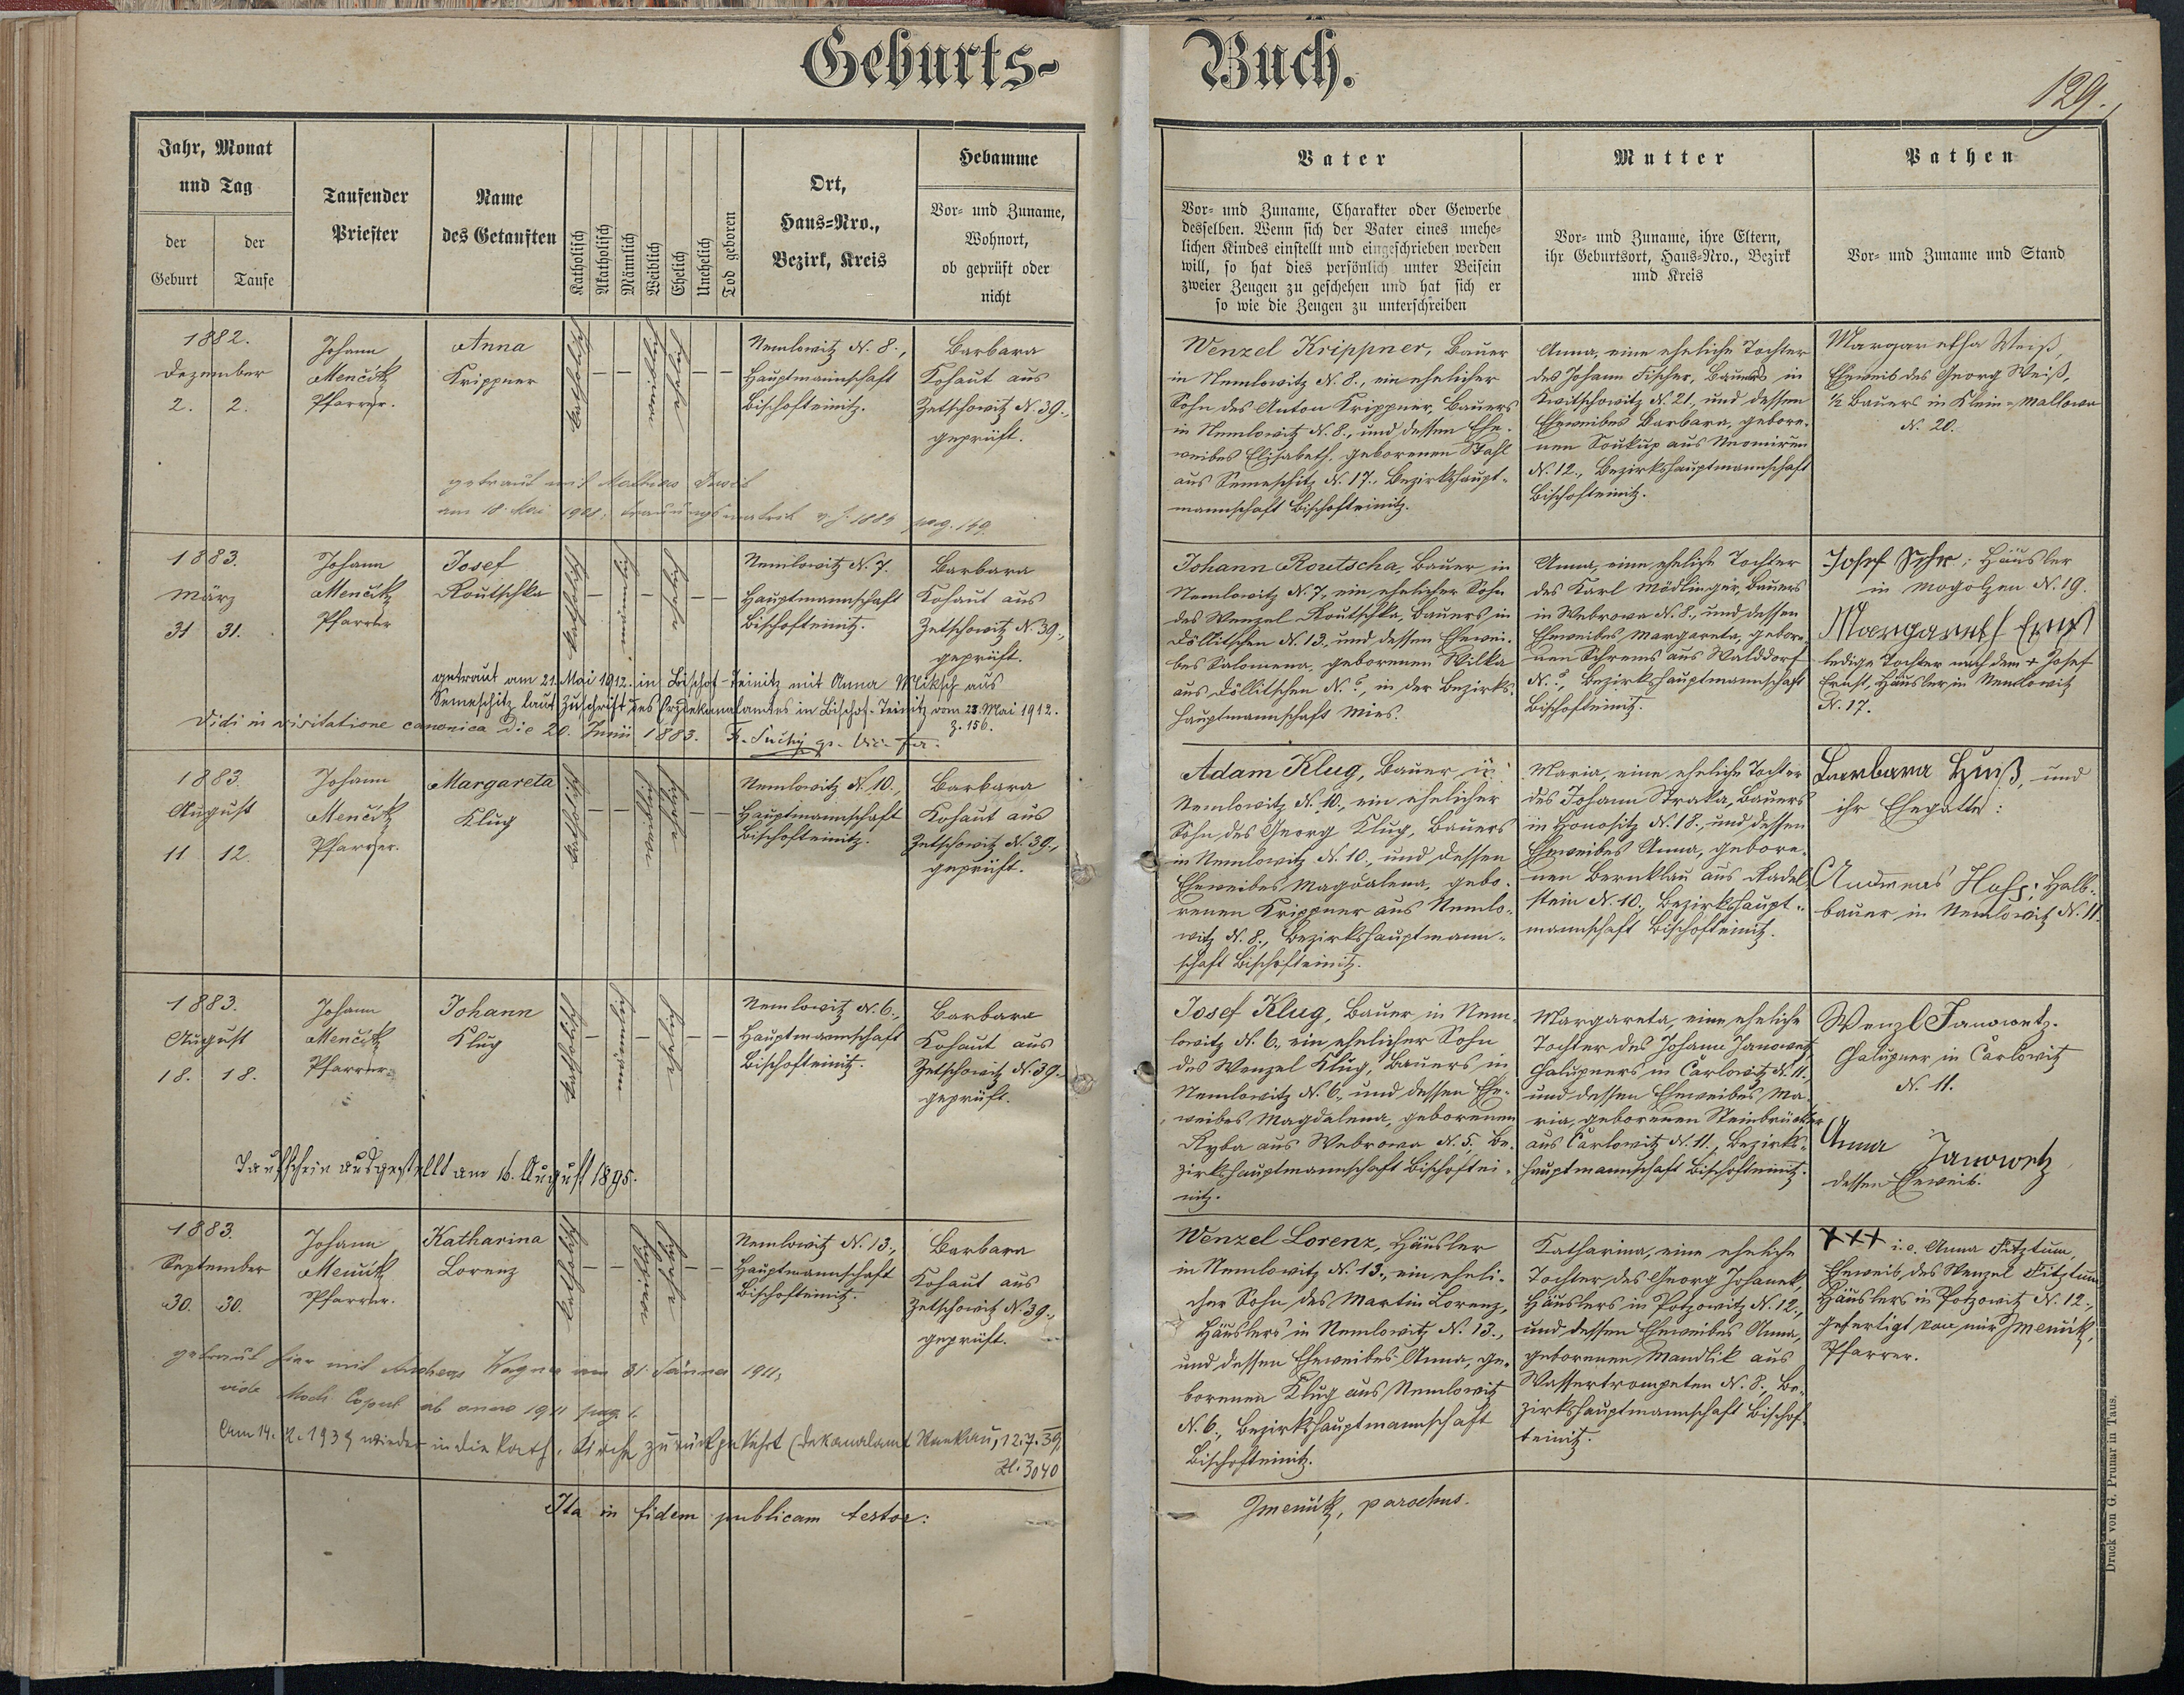 Geburts-
Buch.
129.
Jahr, Monat
und Tag
der
Geburt
der
Taufe
Taufender
Priester
Name
des Getauften
Katholisch
Akatholisch
Männlich
Weiblich
Ehelich
Unehelich
Tod geboren
Ort,
Haus-Nro.,
Bezirk, Kreis
Hebamme
Vor- und Zuname,
Wohnort,
ob geprüft oder
nicht
Vater
Vor- und Zuname, Charakter oder Gewerbe
desselben. Wenn sich der Vater eines unehe-
lichen Kindes einstellt und eingeschrieben werden
will, so hat dies persönlich unter Beisein
zweier Zeugen zu geschehen und hat sich er
so wie die Zeugen zu unterschreiben
Mutter
Vor- und Zuname, ihre Eltern,
ihr Geburtsort, Haus-Nro., Bezirk
und Kreis
Pathen
Vor- und Zuname und Stand
1882.
Dezember
2. 2.
Johann
Menčik
Pfarrer.
Anna
Krippner
katholisch
Nemlowitz N. 8.,
Hauptmannschaft
Bischofteinitz.
Barbara
Kohaut aus
Zetschowitz N. 39.,
geprüft.
Wenzel Krippner, Bauer
in Nemlowitz N. 8., ein ehelicher
Sohn des Anton Krippner, Bauers
in Nemlowitz N. 8., und dessen Ehe-
weibes Elisabeth, geborenen Stahl
aus Semeschitz N. 17., Bezirkshaupt-
mannschaft Bischofteinitz.
Anna, eine eheliche Tochter
des Johann Fischer, Bauers in
Kwitschowitz N. 21., und dessen
Eheweibes Barbara, gebore-
nen Soukup aus
N. 12., Bezirkshauptmannschaft
Bischofteinitz.
Margaretha Weiß,
Eheweib des Georg Weiß,
½ Bauers in Klein-Mallowa
N. 20.
getraut mit Mathias
am 18. Mai 1908, Trauungsmatrik v. J. 1884 pag. 149.
1883.
März
31 31.
Johann
Menčik
Pfarrer
Josef
Routschka
katholisch
Nemlowitz N. 7.
Hauptmannschaft
Bischofteinitz.
Barbara
Kohaut aus
Zetschowitz N. 39.,
geprüft.
Johann Routscha, Bauer in
Nemlowitz N. 7, ein ehelicher Sohn
des Wenzel Routschka, Bauers in
Döllitschen N. 13., und dessen Ehewei-
bes Salomena, geborenen Wilka
aus Döllitschen N. 6, in der Bezirks-
hauptmannschaft Mies.
Anna, eine eheliche Tochter
des Karl Mödlinger, Bauers
in Webrowa N. 8., und dessen
Eheweibes Margareta, gebore-
nen Schrems aus Walddorf
Bezirkshauptmannschaft
Bischofteinitz.
Josef Häusler
in Mogolzen N. 19.
Margareth Ernst
ledige Tochter nach dem + Josef
Ernst, Häusler in Nemlowitz
N. 17.
getraut am 21. Mai 1912. in Bischof-Teinitz mit Anna Miksch aus
Semeschitz laut Zuschrift des Erzdekanalamtes in Bischof-Teinitz vom 28. Mai 1912.
Z. 156.
Vidi in visitatione canonica die 20. Junii 1883.
1883.
August
11 12.
Johann
Menčik
Pfarrer.
Margareta
Klug
katholisch
Nemlowitz N. 10.,
Hauptmannschaft
Bischofteinitz.
Barbara
Kohaut aus
Zetschowitz N. 39.,
geprüft.
Adam Klug, Bauer in
Nemlowitz N. 10., ein ehelicher
Sohn des Georg Klug, Bauers
in Nemlowitz N. 10., und dessen
Eheweibes Magdalena, gebo-
renen Krippner aus Nemlo-
witz N. 8., Bezirkshauptmann-
schaft Bischofteinitz.
Maria, eine eheliche Tochter
des Johann Straka, Bauers
in Honositz N. 18., und dessen
Eheweibes Anna, gebore-
nen Bernklau aus Radel-
stein N. 10., Bezirkshaupt-
mannschaft Bischofteinitz.
Barbara und
ihr Ehegatte:
Andreas Halb-
bauer in Nemlowitz N. 11.
1883.
August
18. 18.
Johann
Menčik
Pfarrer
Johann
Klug
katholisch
Nemlowitz N. 6.,
Hauptmannschaft
Bischofteinitz.
Barbara
Kohaut aus
Zetschowitz N. 39.,
geprüft.
Josef Klug, Bauer in Nem-
lowitz N. 6., ein ehelicher Sohn
des Wenzel Klug, Bauers in
Nemlowitz N. 6., und dessen Ehe-
weibes Magdalena, geborenen
Ryba aus Webrowa N. 5., Be-
zirkshauptmannschaft Bischoftei-
nitz.
Margareta, eine eheliche
Tochter des Johann Janowetz,
Chalupners in Carlowitz N. 11.,
und dessen Eheweibes Ma-
ria, geborenen Steinbrücker
aus Carlowitz N. 11., Bezirks-
hauptmannschaft Bischofteinitz.
Wenzl Janowetz.
Chalupner in Carlowitz
N. 11.
Anna Janowetz
dessen Eheweib.
Taufschein ausgestellt am 16. August 1895.
1883.
September
30. 30.
Johann
Menčik
Pfarrer.
Katharina
Lorenz
katholisch
Nemlowitz N. 13.,
Hauptmannschaft
Bischofteinitz.
Barbara
Kohaut aus
Zetschowitz N. 39.,
geprüft.
Wenzel Lorenz, Häusler
in Nemlowitz N. 13., ein eheli-
cher Sohn des Martin Lorenz,
Häuslers in Nemlowitz N. 13.,
und dessen Eheweibes Anna, ge-
borenen Klug aus Nemlowitz
N. 6., Bezirkshauptmannschaft
Bischofteinitz.
Katharina, eine eheliche
Tochter des Georg Johanek,
Häuslers in Potzowitz N. 12.,
und dessen Eheweibes Anna,
geborenen Mandlik aus
Wassertrompeten N. 8., Be-
zirkshauptmannschaft Bischof-
teinitz.
+++ i.e. Anna Fitztum,
Eheweib des Wenzel Fitztum
Häuslers in Potzowitz N. 12.,
gefertigt von mir JMenčik,
Pfarrer.
getraut hier mit Andreas Wagner am 31. Jänner 1911,
vide Matr. Copul. ab anno 1911 pag 1.
Am 14. 1939 wieder in die kath. Kirche zurückgekehrt (Dekanalamt 12.7.39,
Zl. 3040
Ita in fidem publicam testor:
JMenčik, parochus.
Druck von G. Prunar in Taus.